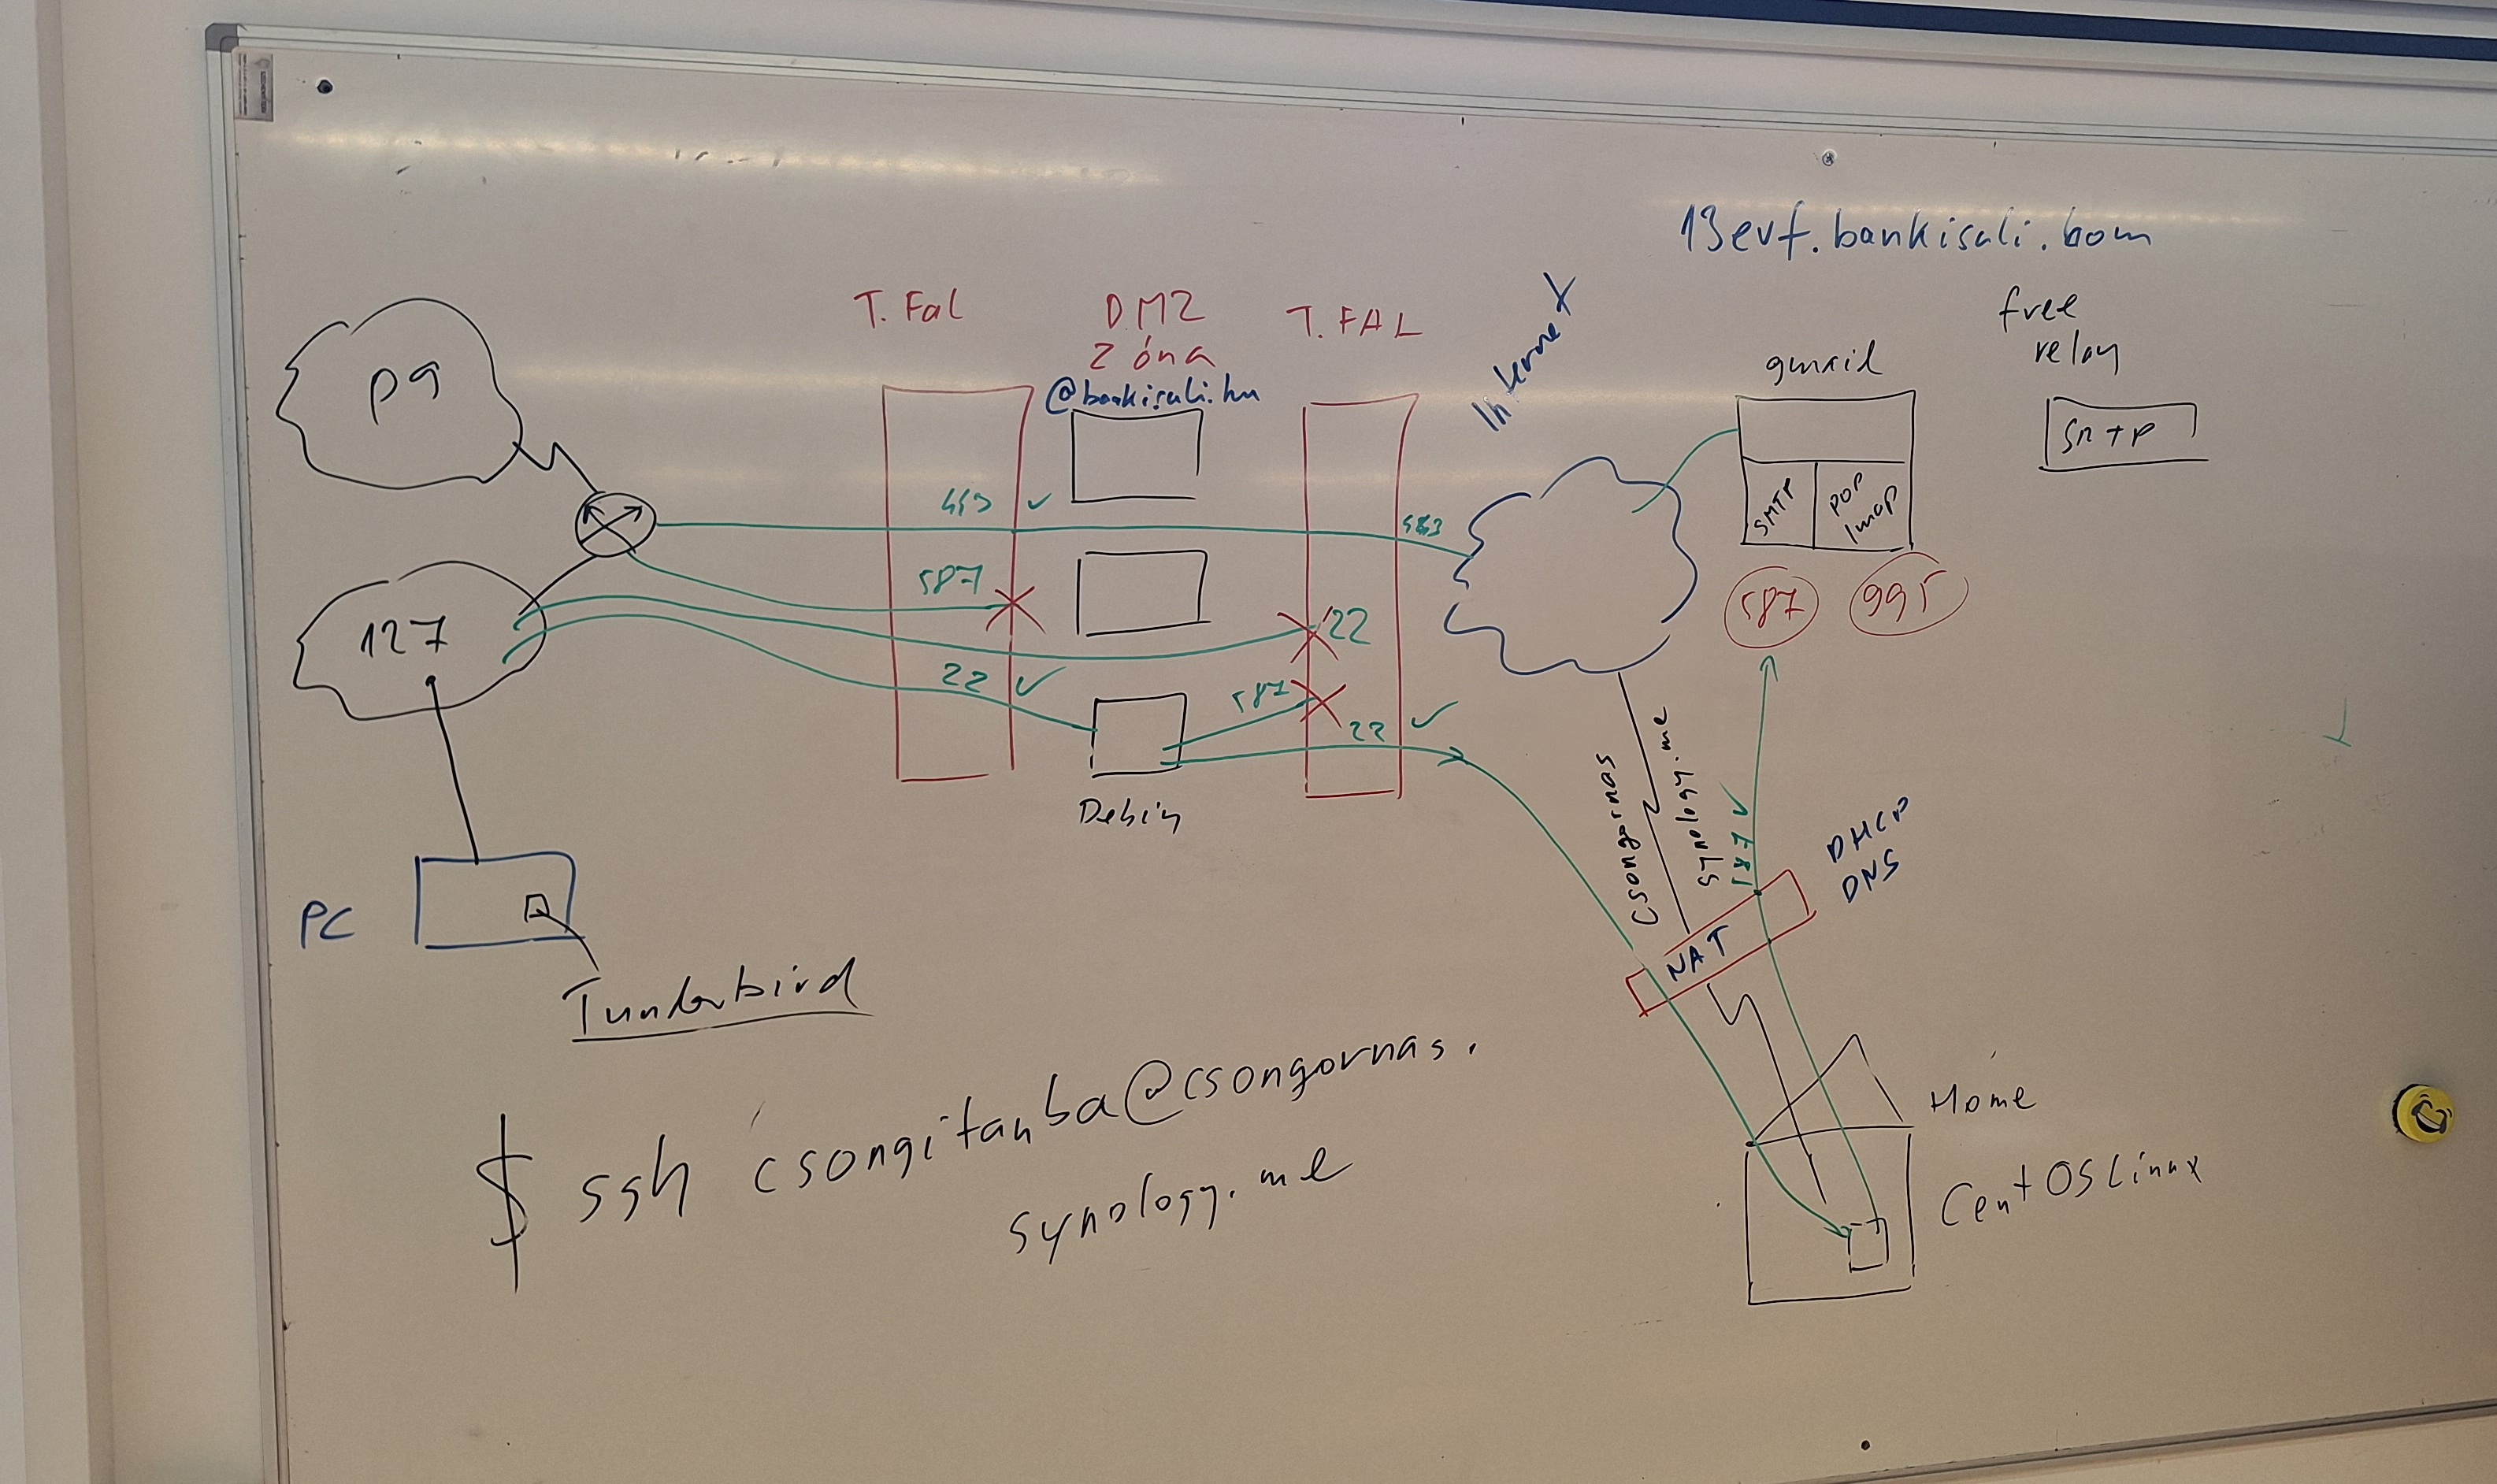 13evf.bankisuli.bom
T. Fal
DMZ
Zóna
@bankisuli.hu
T. FAL
Internet
gmail
free
relay
SMTP
SMTP
POP
Imap
587
995
p9
443
587
22
587
22
22
127
Debian
PC
Tunderbird
csongornas
synology.me
587
NAT
DHCP
DNS
Home
CentOS Linux
$ ssh csongitanba@csongornas.
synology.me